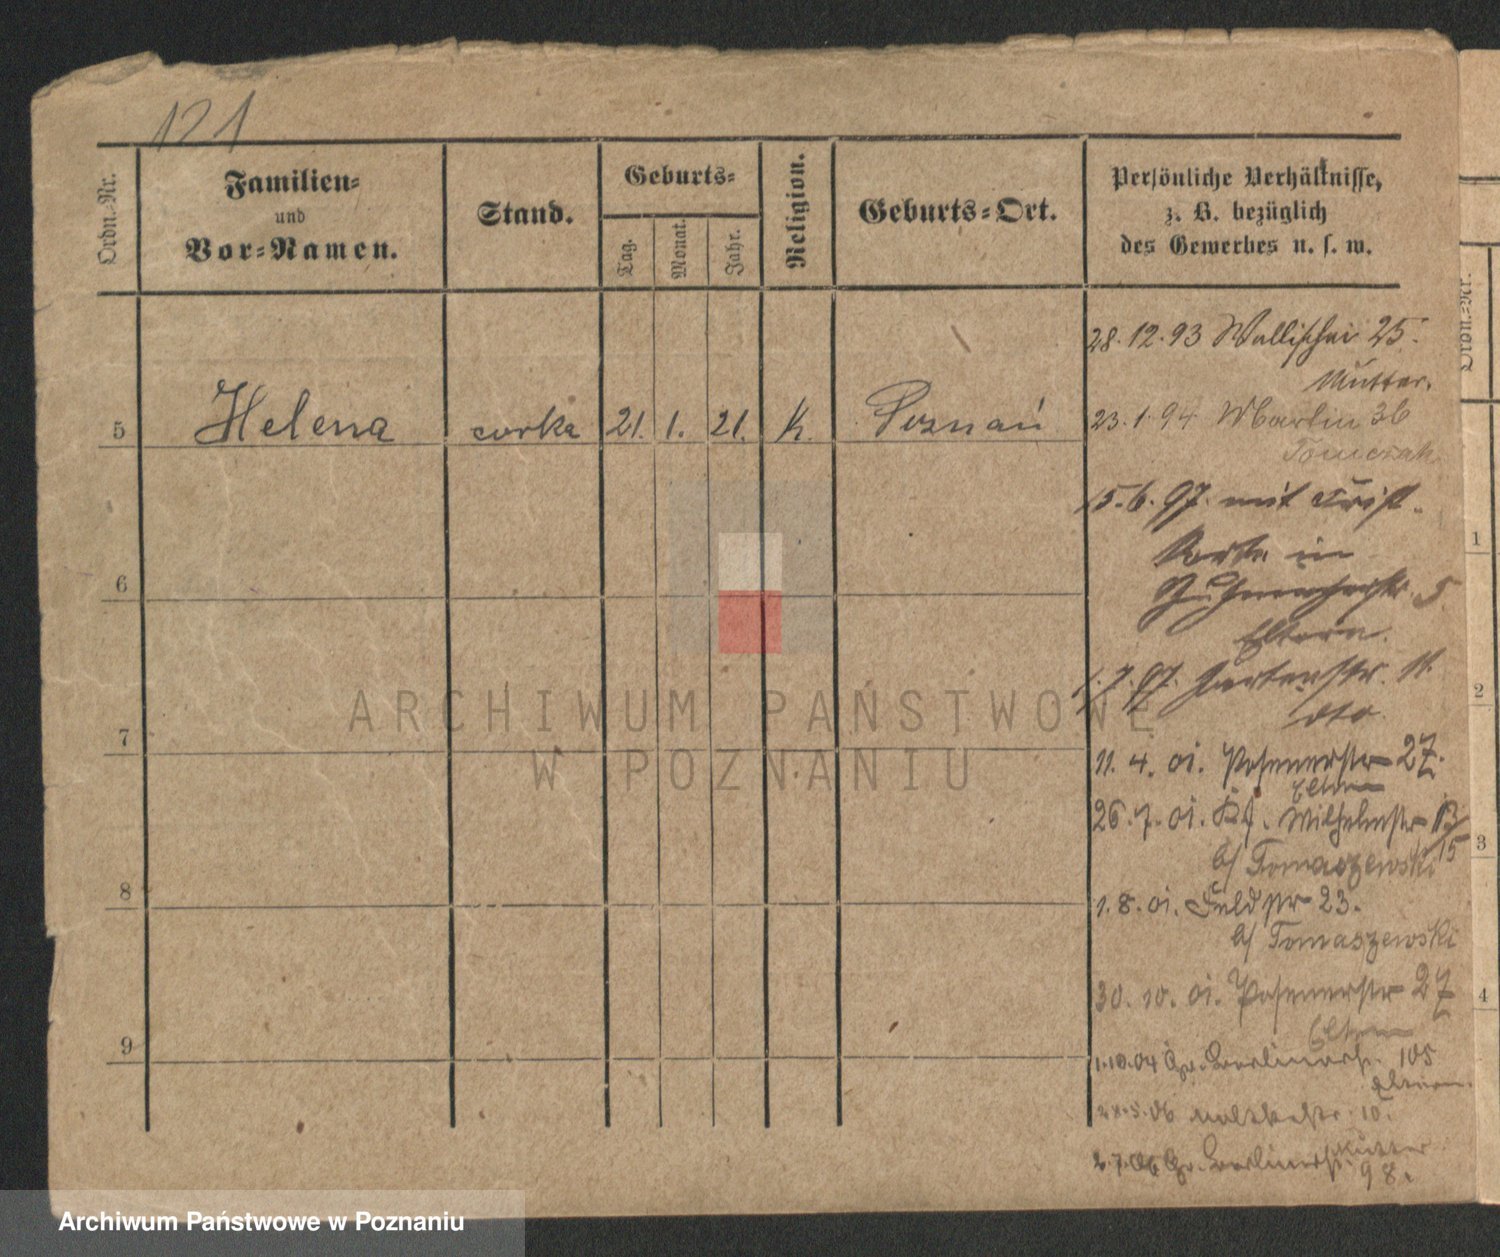 121
Ordn.-Nr.
Familien-
und
Vor-Namen.
Stand.
Geburts-
Tag.
Monat.
Jahr.
Religion.
Geburts-Ort.
Persönliche Verhältnisse,
z. B. bezüglich
des Gewerbes u. s. w.
Ordn.-Nr.
28.12.93 Wallischei 25.
Mutter.
5 Helena corka 21. 1. 21. K. Poznań
23.1.94 St Martin 36
Tomczak
15.6.97. mit
Karte in
5
Eltern.
1.7.97. Gartenstr. 11.
dto
11. 4. 01. Posenerstr 27.
Eltern
26.7.01. Wilhelmstr 13/15
b/ Tomaszewski
1. 8. 01. Feldstr 23.
b/ Tomaszewski
30. 10. 01. Posenerstr 27
Eltern
1.10.04 Gr. Berlinerstr. 105
Eltern.
28.5.06 Moltkestr. 10.
Mutter
2.7.06 Gr. Berlinerstr.
98.
6
7
8
9
1
2
3
4
ARCHIWUM PAŃSTWOWE
W POZNANIU
Archiwum Państwowe w Poznaniu